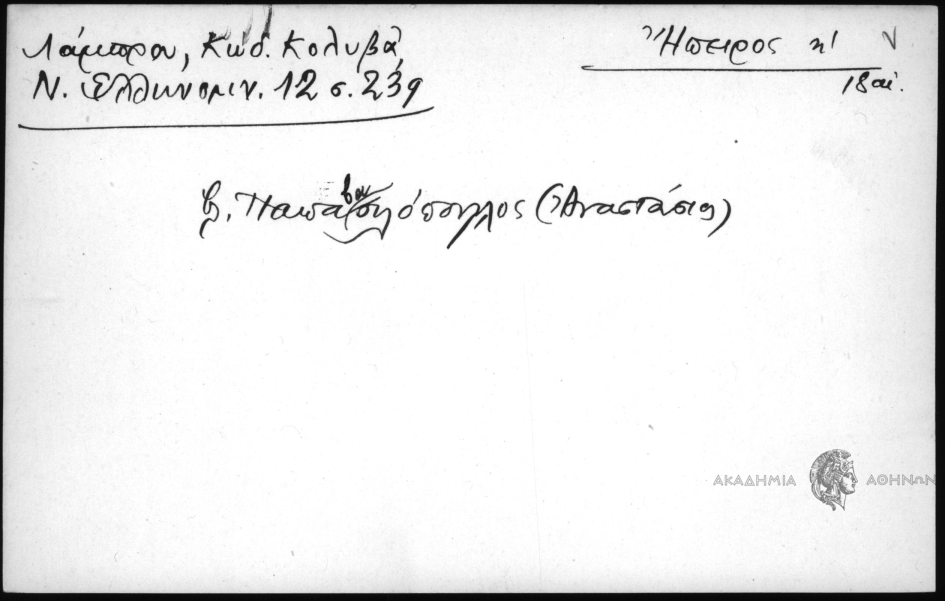 Λάμπρου, Κώδ. Κολυβᾶ,
Ν. Ἑλληνομν. 12 σ. 239
Ἤπειρος κ' ν
18 αἰ.
βλ. Παπαβασιλόπουλος (Ἀναστάσιος)
ΑΚΑΔΗΜΙΑ ΑΘΗΝΩΝ